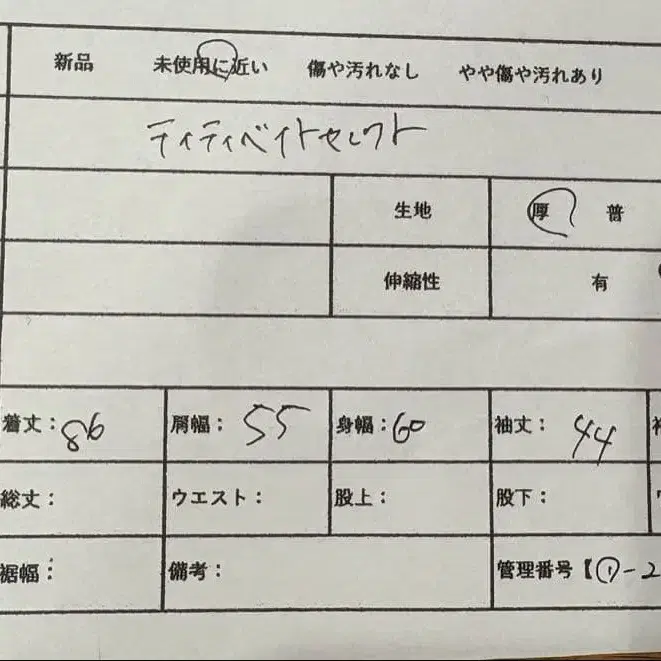 新品 未使用に近い 傷や汚れなし やや傷や汚れあり
ティティベイトセレクト
生地 厚 普
伸縮性 有
着丈: 86 肩幅: 55 身幅: 60 袖丈: 44
総丈: ウエスト: 股上: 股下:
裾幅: 備考: 管理番号【①-2